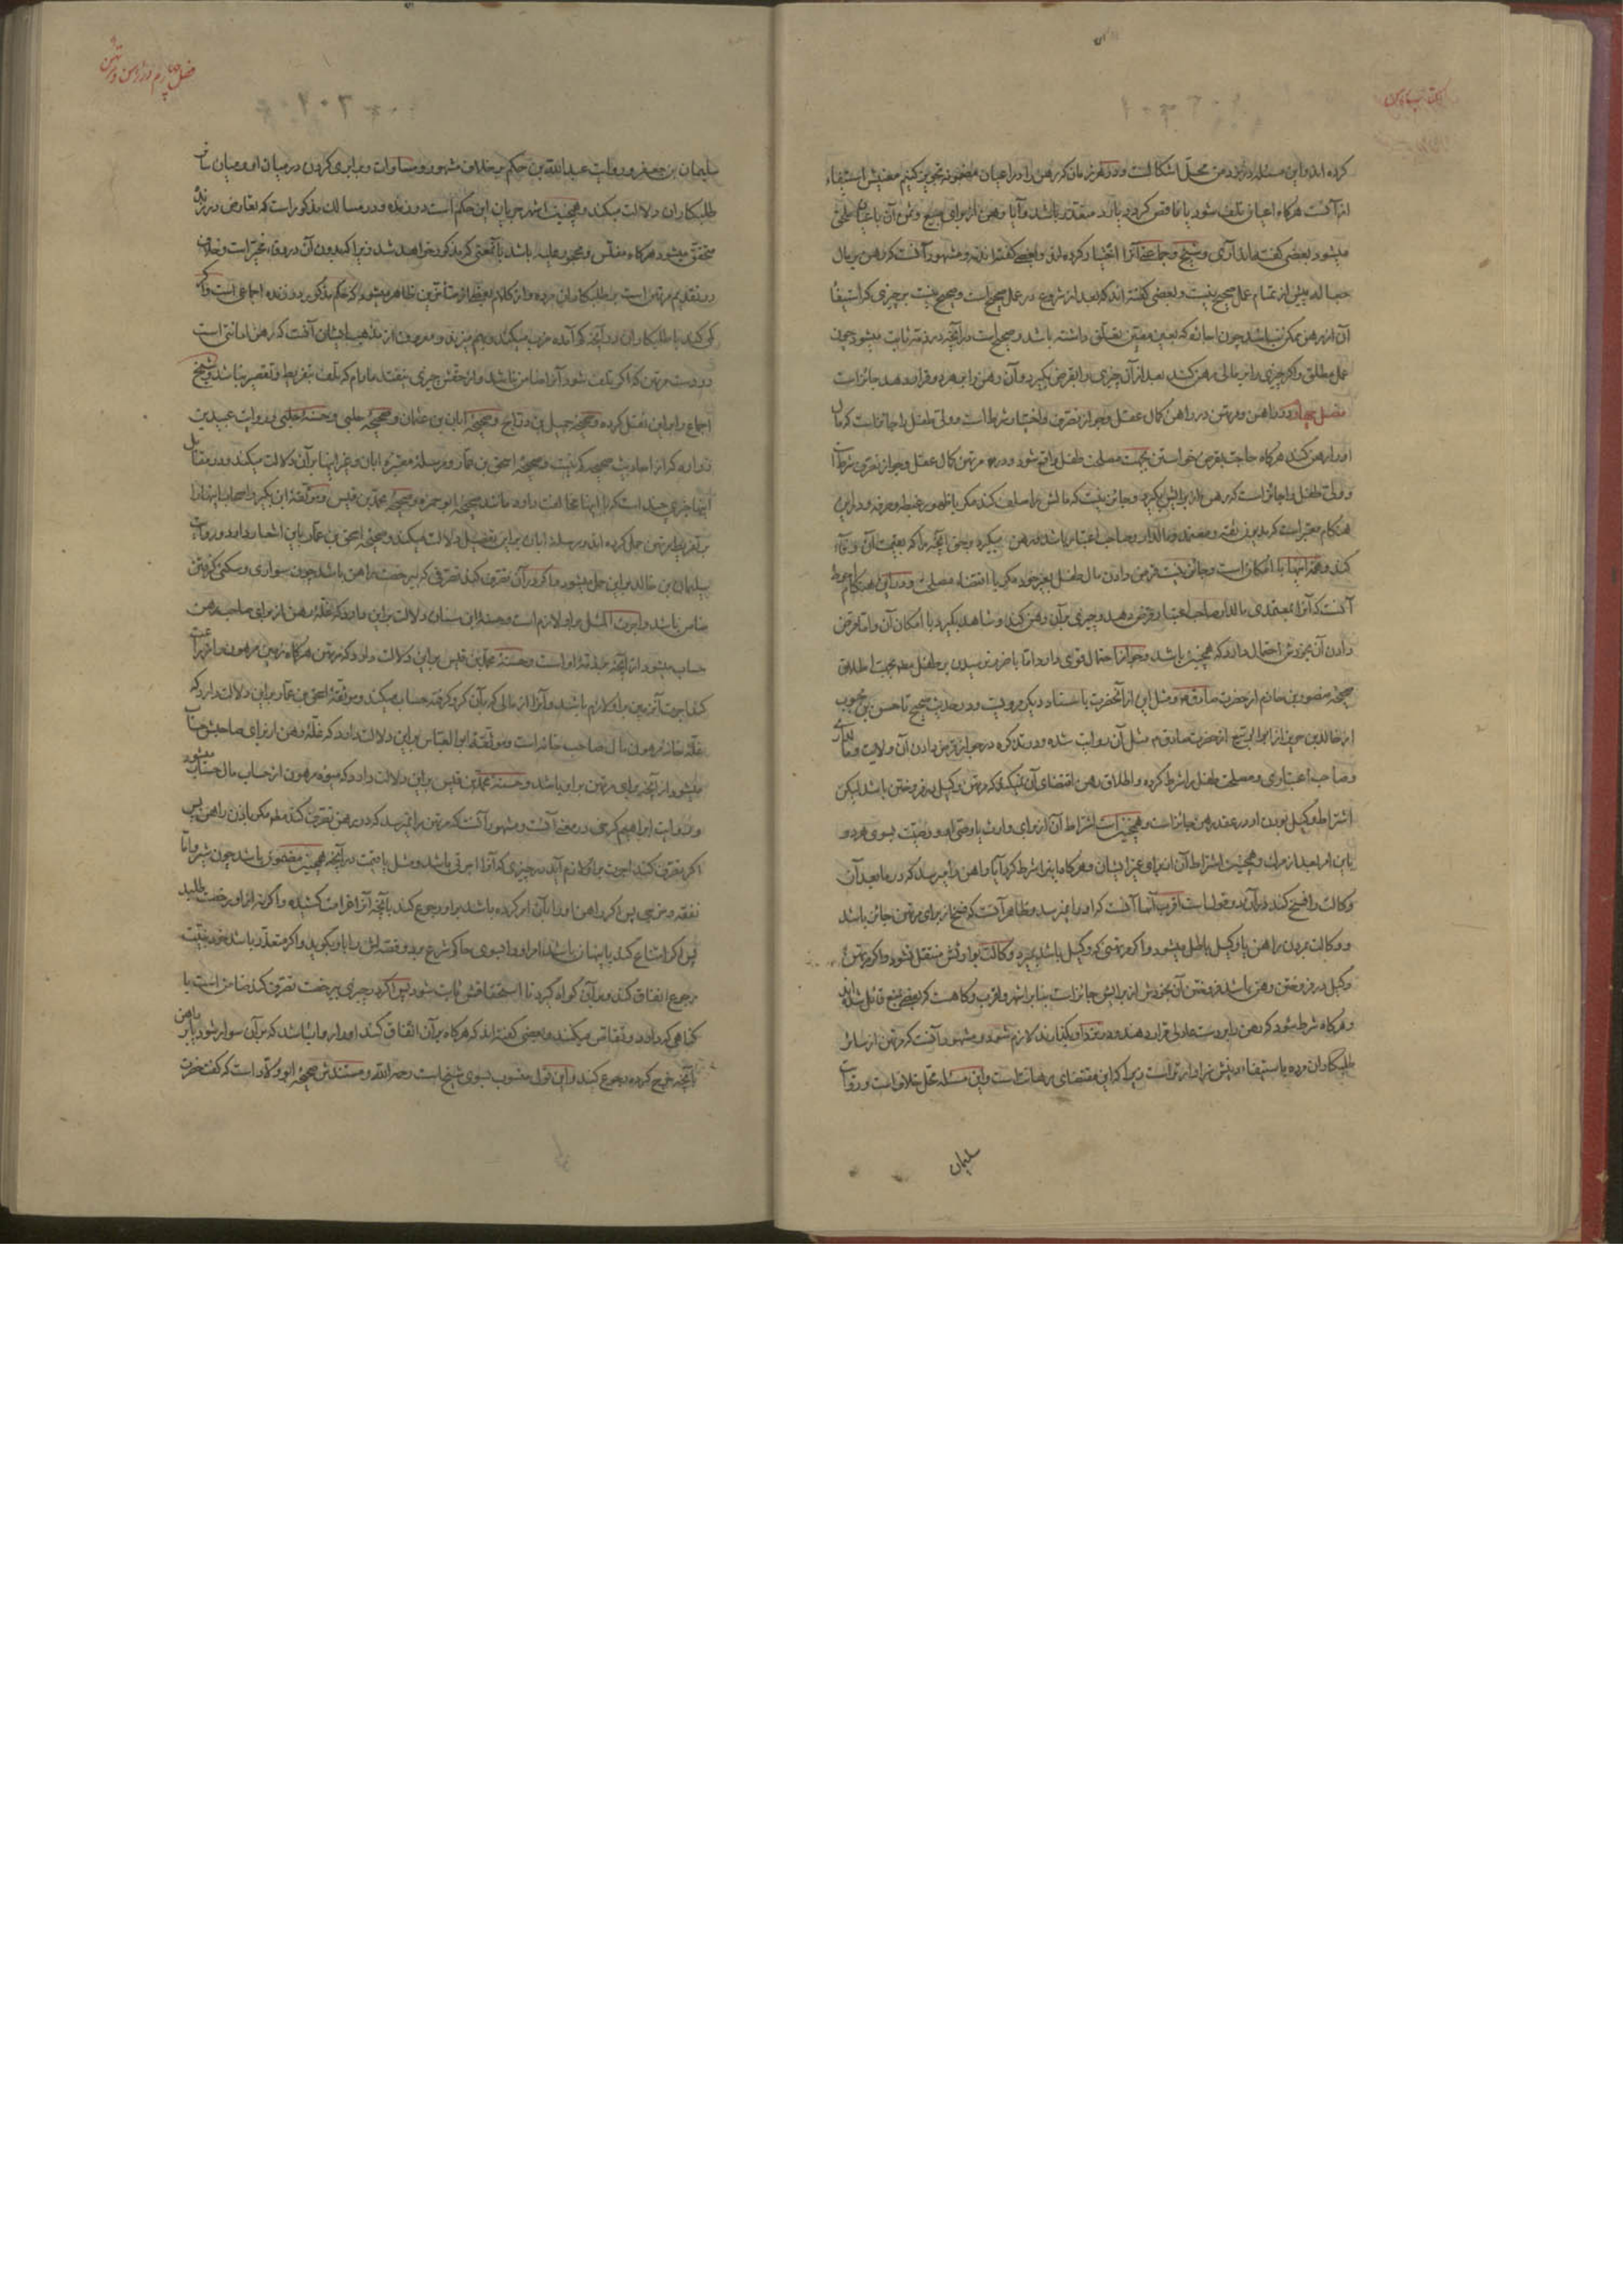 کرده اند و این مسئله در نزد من محل اشکالست و در هر زمان که رهن را در اعیان مضمونه تجویز کنیم معنیش استیفاء
از آنست هرگاه اعیان تلف شود یا ناقص گردد یا رد متعذر باشد و آیا رهن از برای مبیع و ثمن آن
میشود بعضی گفته اند آری و شیخ و جماعتی آنرا اختیار کرده اند و بعضی گفته اند نه و مشهور آنست که رهن بر مال
جعاله پیش از تمام عمل صحیح نیست و بعضی گفته اند که بعد از شروع در عمل صحیح است و صحیح نیست بر چیزی که استیفا
آن از رهن ممکن نباشد چون اجاره که بعین معین تعلق داشته باشد و صحیح است در آنچه در ذمه ثابت میشود چون
عمل مطلق و اگر چیزی را بر مالی رهن کند بعد از آن چیزی را بقرض بگیرد و آن رهن را بر هر دو قرار دهد جائز است
فصل چهارم در راهن و مرتهن در راهن کمال عقل و جواز تصرف و اختیار شرط است و ولی طفل را جائز است که مال
او را رهن کند هرگاه حاجت بقرض خواستن بجهت مصلحت طفل واقع شود و در مرتهن کمال عقل و جواز تصرف شرط است
و ولی طفل را جائز است که رهن از برایش بگیرد و جائز نیست که مالش را سلف کند مگر با ظهور غبطه و صرفه و در این
هنگام معتبر است که مدیون ثقه و معتمد و مالدار و صاحب اعتبار باشد و رهن بگیرد
کند و همه اینها با امکان است و جائز نیست قرض دادن مال طفل بغیر خود مگر با اقتضاء مصلحت و در این هنگام احوط
آنست که آنرا بمعتمدی مالدار صاحب اعتبار قرض دهد و چیزی بر آن رهن کند و شاهد بگیرد با امکان آن و اما قرض
دادن آن بخودش احتمال دارد که همچنین باشد و جواز احتمال قوی دارد اما با ضرر نرسیدن بر طفل بجهت اطلاق
صحیحه منصور بن حازم از حضرت صادق و مثل این از آنحضرت باسناد دیگر مرویست و در حدیث صحیح تا حسن بن محبوب
از خالد بن جریر از ابو الربیع از حضرت صادق مثل آن روایت شده و در تذکره در جواز قرض دادن آن ولایت
و صاحب اعتباری و مصلحت طفل را شرط کرده و اطلاق رهن اقتضای آن نمیکند که مرتهن وکیل در فروختن باشد لیکن
اشتراط وکیل بودن او در عقد رهن جائز است و همچنین است اشتراط آن از برای وارث یا وصی او و وصیت بسوی هر دو
باین امر بعد از مرگ و همچنین اشتراط آن از برای غیر ایشان و هرگاه این را شرط کرد آیا راهن را میرسد که در ما بعد آن
وکالت را فسخ کند در آن دو قولست اقرب آنها آنست که او را نمیرسد و ظاهر آنست که فسخ از برای مرتهن جائز باشد
و وکالت بمردن راهن یا وکیل باطل میشود و اگر مرتهنی که وکیل باشد بمیرد وکالت بوارثش منتقل نشود و اگر مرتهن
وکیل در فروختن رهن باشد فروختن آن بخودش از برایش جائز است بنابر اشهر و اقرب و گاهست که بعضی بمنع قائل شده اند
و هرگاه شرط شود که رهن را در دست عادلی قرار دهند لازم شود و مشهور آنست که مرتهن از سائر
طلبکاران مرده باستیفاء دینش سزاوارتر است زیرا که این مقتضای رهانت است و این مسئله محل خلافست و روایت
سلیمان
فصل چهارم در راهن و مرتهن
سلیمان بن حفص و روایت عبد الله بن حکم بر خلاف مشهور و مساوات و برابری کردن در میان او و میان سائر
طلبکاران دلالت میکند و همچنین اشهر جریان این حکم است در زنده و در مسالک مذکور است که تعارض در زنده
متحقق میشود هرگاه مفلس و محجور علیه باشد زیرا که بدون آن در وفاء مخیر است و خلاف
در تقدیم مرتهن است بر طلبکاران مرده و از کلام بعضی از متأخرین ظاهر میشود که حکم مذکور در زنده اجماعی است و اگر
کمی کند با طلبکاران در آنچه کم آمده ضرب میکند و معروف از مذهب ایشان آنست که رهن امانتی است
در دست مرتهن که اگر تلف شود آنرا ضامن نباشد و از حقش چیزی نیفتد مادام که تلف بتفریط و تقصیر نباشد و شیخ
اجماع را بر این نقل کرده و صحیحه جمیل بن دراج و صحیحه ابان بن عثمان و صحیحه حلبی و حسنه حلبی و روایت عبید بن
زراره و صحیحه اسحق بن عمار و مرسله معتبره ابان و غیر اینها بر آن دلالت میکند و در مقابل
اینها خبری چند است که با اینها مخالفت دارد مانند صحیحه ابو حمزه و صحیحه محمد بن قیس و موثقه ابن بکیر و اصحاب اینها را
بر تفریط مرتهن حمل کرده اند و مرسله ابان بر این تفصیل دلالت میکند و صحیحه اسحق بن عمار باین اشعار دارد و روایت
سلیمان بن خالد بر این حمل میشود و اگر در آن تصرف کند تصرفی که بی رخصت راهن باشد چون سواری و سکنی گرفتن
ضامن باشد و اجرت المثل بر او لازم است و حسنه ابن سنان دلالت بر این دارد که غله رهن از برای صاحب رهن
حساب میشود از آنچه بر ذمه او است و حسنه محمد بن قیس بر این دلالت دارد که مرتهن هرگاه زمین مرهون را زراعت
کند اجرت آن زمین بر او لازم باشد و آنرا از مالی که بآن گرو گرفته حساب میکند و موثقه اسحق بن عمار بر این دلالت دارد که
غله خانه مرهون مال صاحب خانه است و موثقه ابو العباس بر این دلالت دارد که غله رهن از برای صاحبش حساب
میشود از آنچه برای مرتهن بر او باشد و حسنه محمد بن قیس بر این دلالت دارد که میوه مرهون از حساب مال حساب میشود
و روایت ابراهیم کرخی در معنی آنست و مشهور آنست که مرتهن را نمیرسد که در رهن تصرف کند مگر باذن راهن پس
اگر تصرف کند اجرت بر او لازم آید در چیزی که آنرا اجرتی باشد و مثل یا قیمت در آنچه همچنین مضمون باشد چون شیر و اما
نفقه و خرجی پس اگر راهن او را بآن امر کرده باشد بر او رجوع کند بآنچه آنرا غرامت کشیده و اگر نه از او رخصت طلبد
پس اگر امتناع کند یا پنهان باشد امر او را بسوی حاکم شرع برد و قصه اش را باو بگوید و اگر متعذر باشد خود بنیت
رجوع انفاق کند و بر آن گواه گیرد تا استحقاقش ثابت شود پس اگر در چیزی بی رخصت تصرف کند ضامن است با
گناهی که دارد و تقاص میکنند و بعضی گفته اند که هرگاه بر آن انفاق کند او را روا باشد که بر آن سوار شود یا بر راهن
بآنچه خرج کرده رجوع کند و این قول منسوب بسوی شیخ است رحمه الله و مستندش صحیحه ابو ولاد است که گفت حضرت